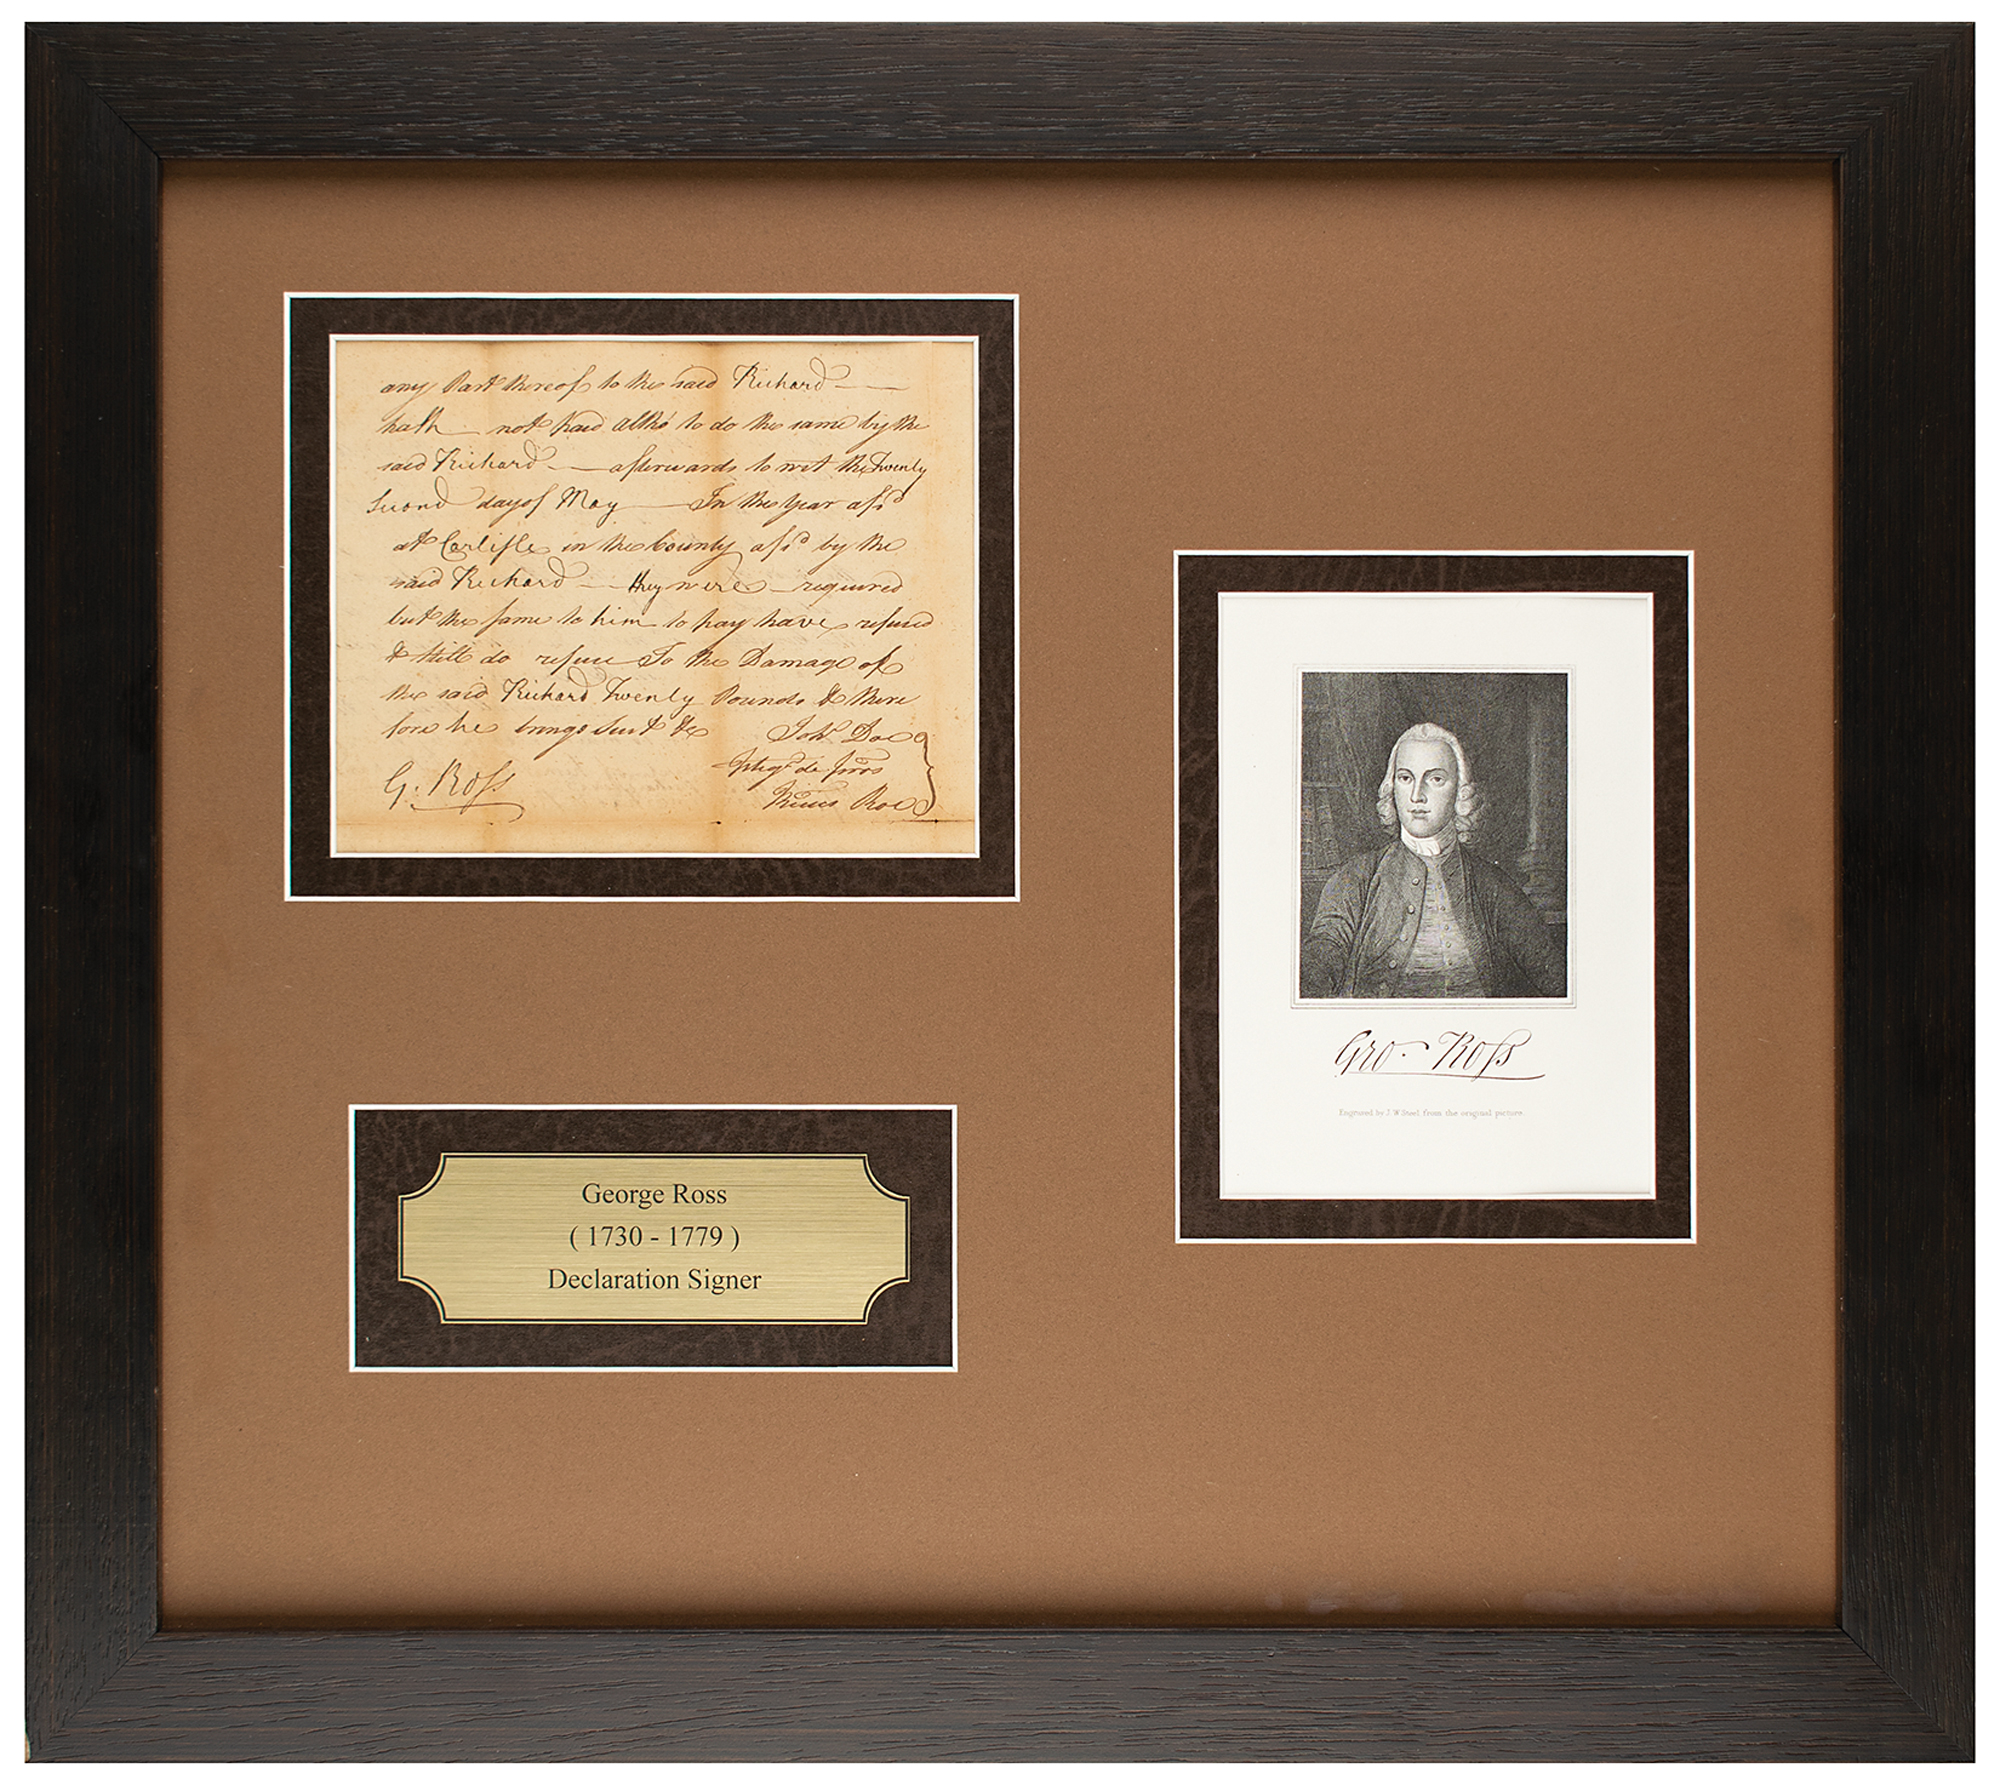 any Part thereof to the said Richard
hath not paid altho' to do the same by the
said Richard afterwards to wit the Twenty
Second day of May In the Year afsd
at Carlisle in the County afsd by the
said Richard they were required
but the same to him to pay have refused
& still do refuse To the Damage of
the said Richard Twenty Pounds & there
fore he brings Suit &c
John Doe
de pros
Roe
G. Ross
Geo. Ross
Engraved by J. W. Steel from the original picture.
George Ross
( 1730 - 1779 )
Declaration Signer